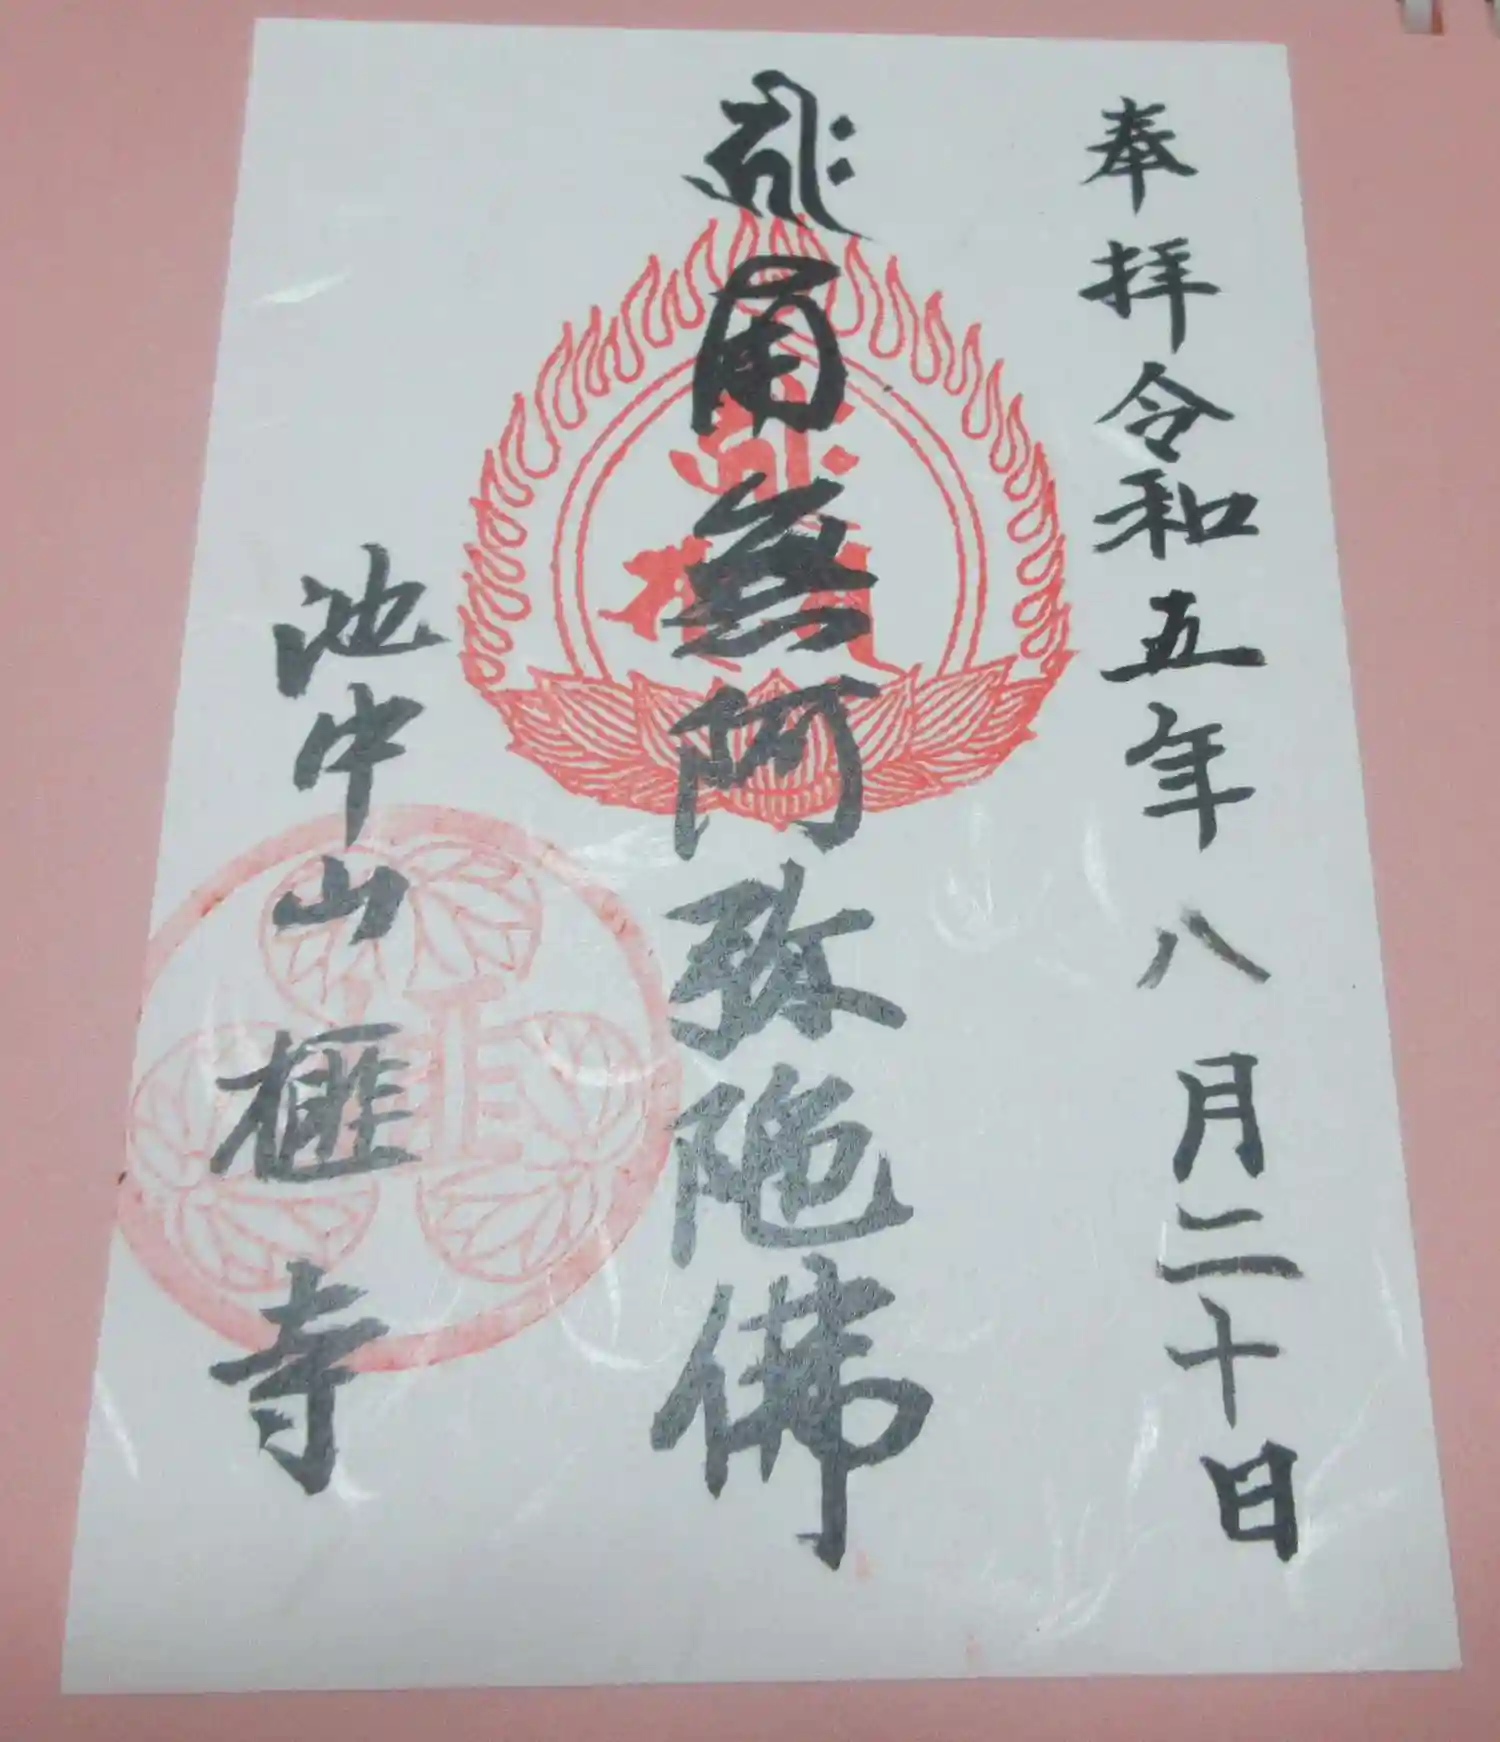 奉拝令和五年八月二十日
𑖮𑖿𑖨𑖱𑖾
南無阿弥陀佛
池中山榧寺